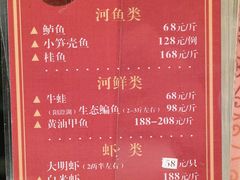 河鱼类
▲ 鲈鱼 68元/斤
▲ 小笋壳鱼 128元/例
▲ 桂鱼 168元/斤
河鲜类
▲ 牛蛙 68元/斤
▲ (阳澄湖)生态鳊鱼(2-3斤左右) 98元/斤
▲ 黄油甲鱼 188-208元/斤
虾类
大明虾(2两半左右) 68元/只
白米虾 188元/斤